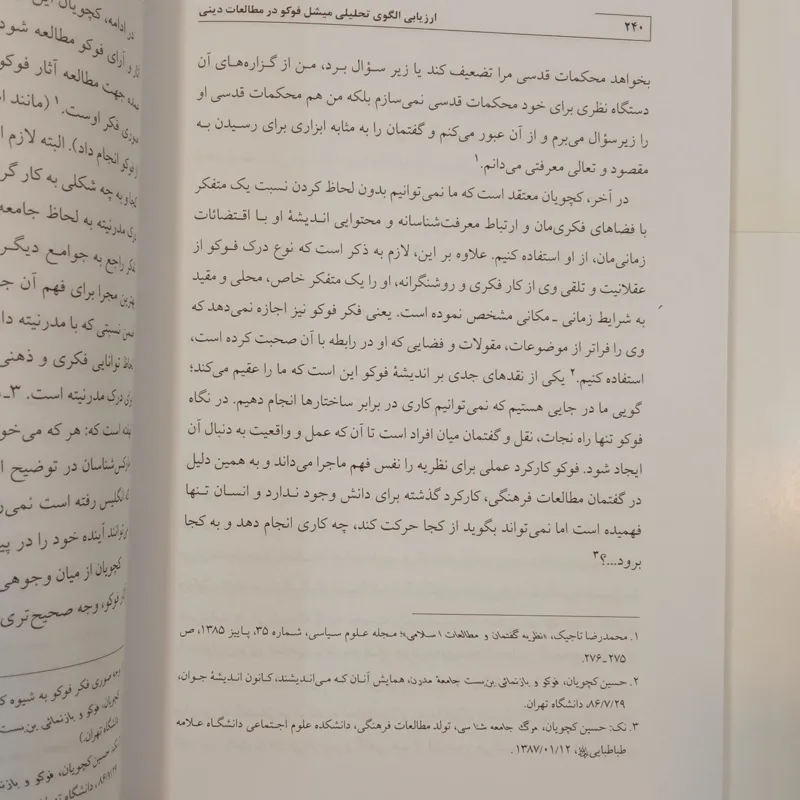 ۲۴۰
ارزیابی الگوی تحلیلی میشل فوکو در مطالعات دینی
بخواهد محکمات قدسی مرا تضعیف کند یا زیر سؤال برد، من از گزاره‌های آن
دستگاه نظری برای خود محکمات قدسی نمی‌سازم بلکه من هم محکمات قدسی او
را زیرسؤال می‌برم و از آن عبور می‌کنم و گفتمان را به مثابه ابزاری برای رسیدن به
مقصود و تعالی معرفتی می‌دانم.۱
در آخر، کچویان معتقد است که ما نمی‌توانیم بدون لحاظ کردن نسبت یک متفکر
با فضاهای فکری‌مان و ارتباط معرفت‌شناسانه و محتوایی اندیشهٔ او با اقتضائات
زمانی‌مان، از او استفاده کنیم. علاوه بر این، لازم به ذکر است که نوع درک فوکو از
عقلانیت و تلقی وی از کار فکری و روشنگرانه، او را یک متفکر خاص، محلی و مقید
به شرایط زمانی ـ مکانی مشخص نموده است. یعنی فکر فوکو نیز اجازه نمی‌دهد که
وی را فراتر از موضوعات، مقولات و فضایی که او در رابطه با آن صحبت کرده است،
استفاده کنیم.۲ یکی از نقدهای جدی بر اندیشهٔ فوکو این است که ما را عقیم می‌کند؛
گویی ما در جایی هستیم که نمی‌توانیم کاری در برابر ساختارها انجام دهیم. در نگاه
فوکو تنها راه نجات، نقل و گفتمان میان افراد است تا آن‌که عمل و واقعیت به دنبال آن
ایجاد شود. فوکو کارکرد عملی برای نظریه را نفس فهم ماجرا می‌داند و به همین دلیل
در گفتمان مطالعات فرهنگی، کارکرد گذشته برای دانش وجود ندارد و انسان تنها
فهمیده است اما نمی‌تواند بگوید از کجا حرکت کند، چه کاری انجام دهد و به کجا
برود...؟۳
۱. محمدرضا تاجیک، «نظریه گفتمان و مطالعات اسلامی»؛ مجله علوم سیاسی، شماره ۳۵، پاییز ۱۳۸۵، ص
۲۷۵ـ۲۷۶.
۲. حسین کچویان، فوکو و بازنمائی بن‌بست جامعهٔ مدرن، همایش آنان که می‌اندیشند، کانون اندیشهٔ جوان،
۸۶/۷/۲۹، دانشگاه تهران.
۳. نک: حسین کچویان، مرگ جامعه شناسی، تولد مطالعات فرهنگی، دانشکده علوم اجتماعی دانشگاه علامه
طباطبایی، ۱۳۸۷/۰۱/۱۲.
در ادامه، کچویان این
و آرای فوکو مطالعه شود
جهت مطالعه آثار فوکو
صوری فکر اوست.۱ (مانند
فوکو انجام داد). البته لازم
و به چه شکلی به کار
مدرنیته به لحاظ جامعه
راجع به جوامع دیگر
مجرا برای فهم آن
نسبتی که با مدرنیته
توانایی فکری و ذهنی
درک مدرنیته است. ۳ـ
است که: هر که می‌خو
شناسان در توضیح
انگلیس رفته است
آینده خود را در
کچویان از میان وجوهی
فوکو، وجه صحیح‌تری
صوری فکر فوکو به شیوه
کچویان، فوکو و بازنمائی بن‌بست
دانشگاه تهران.)
نک: حسین کچویان، فوکو و